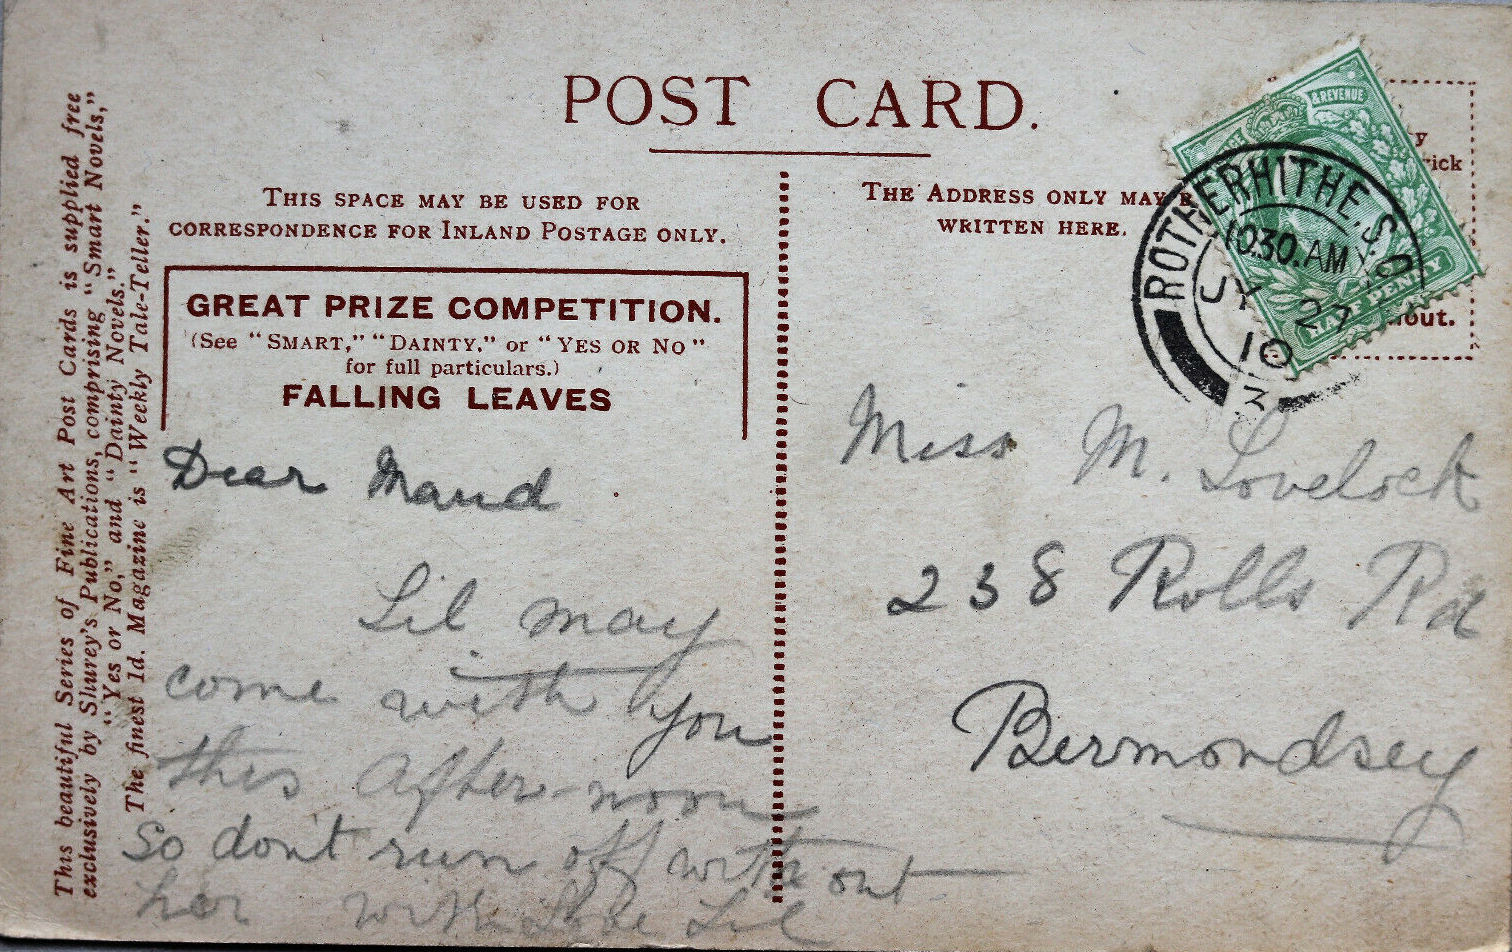 POST CARD.
This beautiful Series of Fine Art Post Cards is supplied free
exclusively by Shurey's Publications, comprising "Smart Novels,"
"Yes or No," and "Dainty Novels."
The finest 1d. Magazine is "Weekly Tale-Teller."
THIS SPACE MAY BE USED FOR
CORRESPONDENCE FOR INLAND POSTAGE ONLY.
GREAT PRIZE COMPETITION.
(See "SMART," "DAINTY," or "YES OR NO"
for full particulars.)
FALLING LEAVES
Dear Maud
Lil may
come with you
this after-noon
so don't run off with out
her with Love Lil
THE ADDRESS ONLY MAY B
WRITTEN HERE.
& REVENUE
HALF PENNY
y
rick
out.
ROTHERHITHE. S.O
10.30.AM
JY 27
10
3
Miss M. Lovelock
238 Rolls Rd
Bermondsey